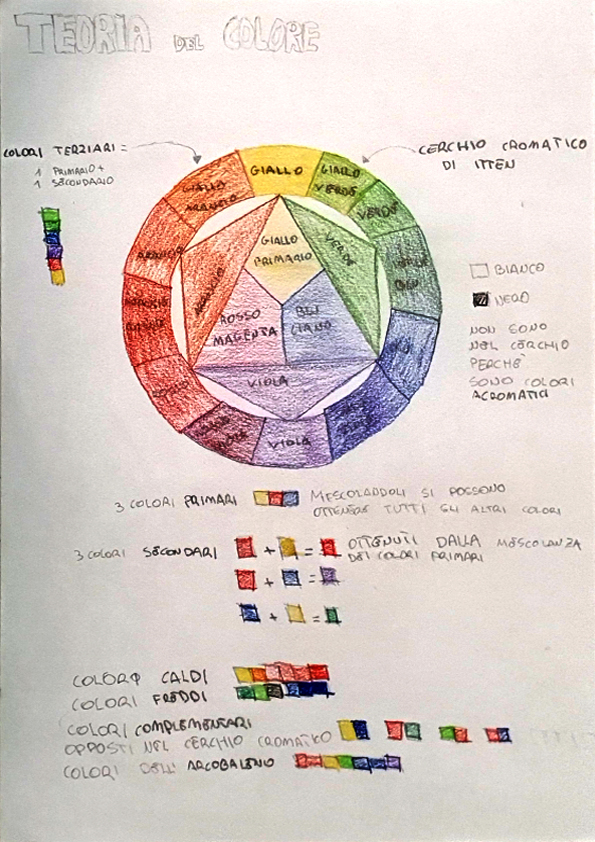 TEORIA DEL COLORE
COLORI TERZIARI =
1 PRIMARIO +
1 SECONDARIO
CERCHIO CROMATICO
DI ITTEN
GIALLO
GIALLO
VERDE
VERDE
VERDE
BLU
BLU
VIOLA
ROSSO
ARANCIO
GIALLO
ARANCIO
GIALLO
PRIMARIO
VERDE
ARANCIO
ROSSO
MAGENTA
BLU
CIANO
VIOLA
BIANCO
NERO
NON SONO
NEL CERCHIO
PERCHÈ
SONO COLORI
ACROMATICI
3 COLORI PRIMARI
MESCOLADDOLI SI POSSONO
OTTENERE TUTTI GLI ALTRI COLORI
3 COLORI SECONDARI
+ =
OTTENUTI DALLA MESCOLANZA
DEI COLORI PRIMARI
+ =
+ =
COLORI CALDI
COLORI FREDDI
COLORI COMPLEMENTARI
OPPOSTI NEL CERCHIO CROMATICO
COLORI DELL'ARCOBALENO